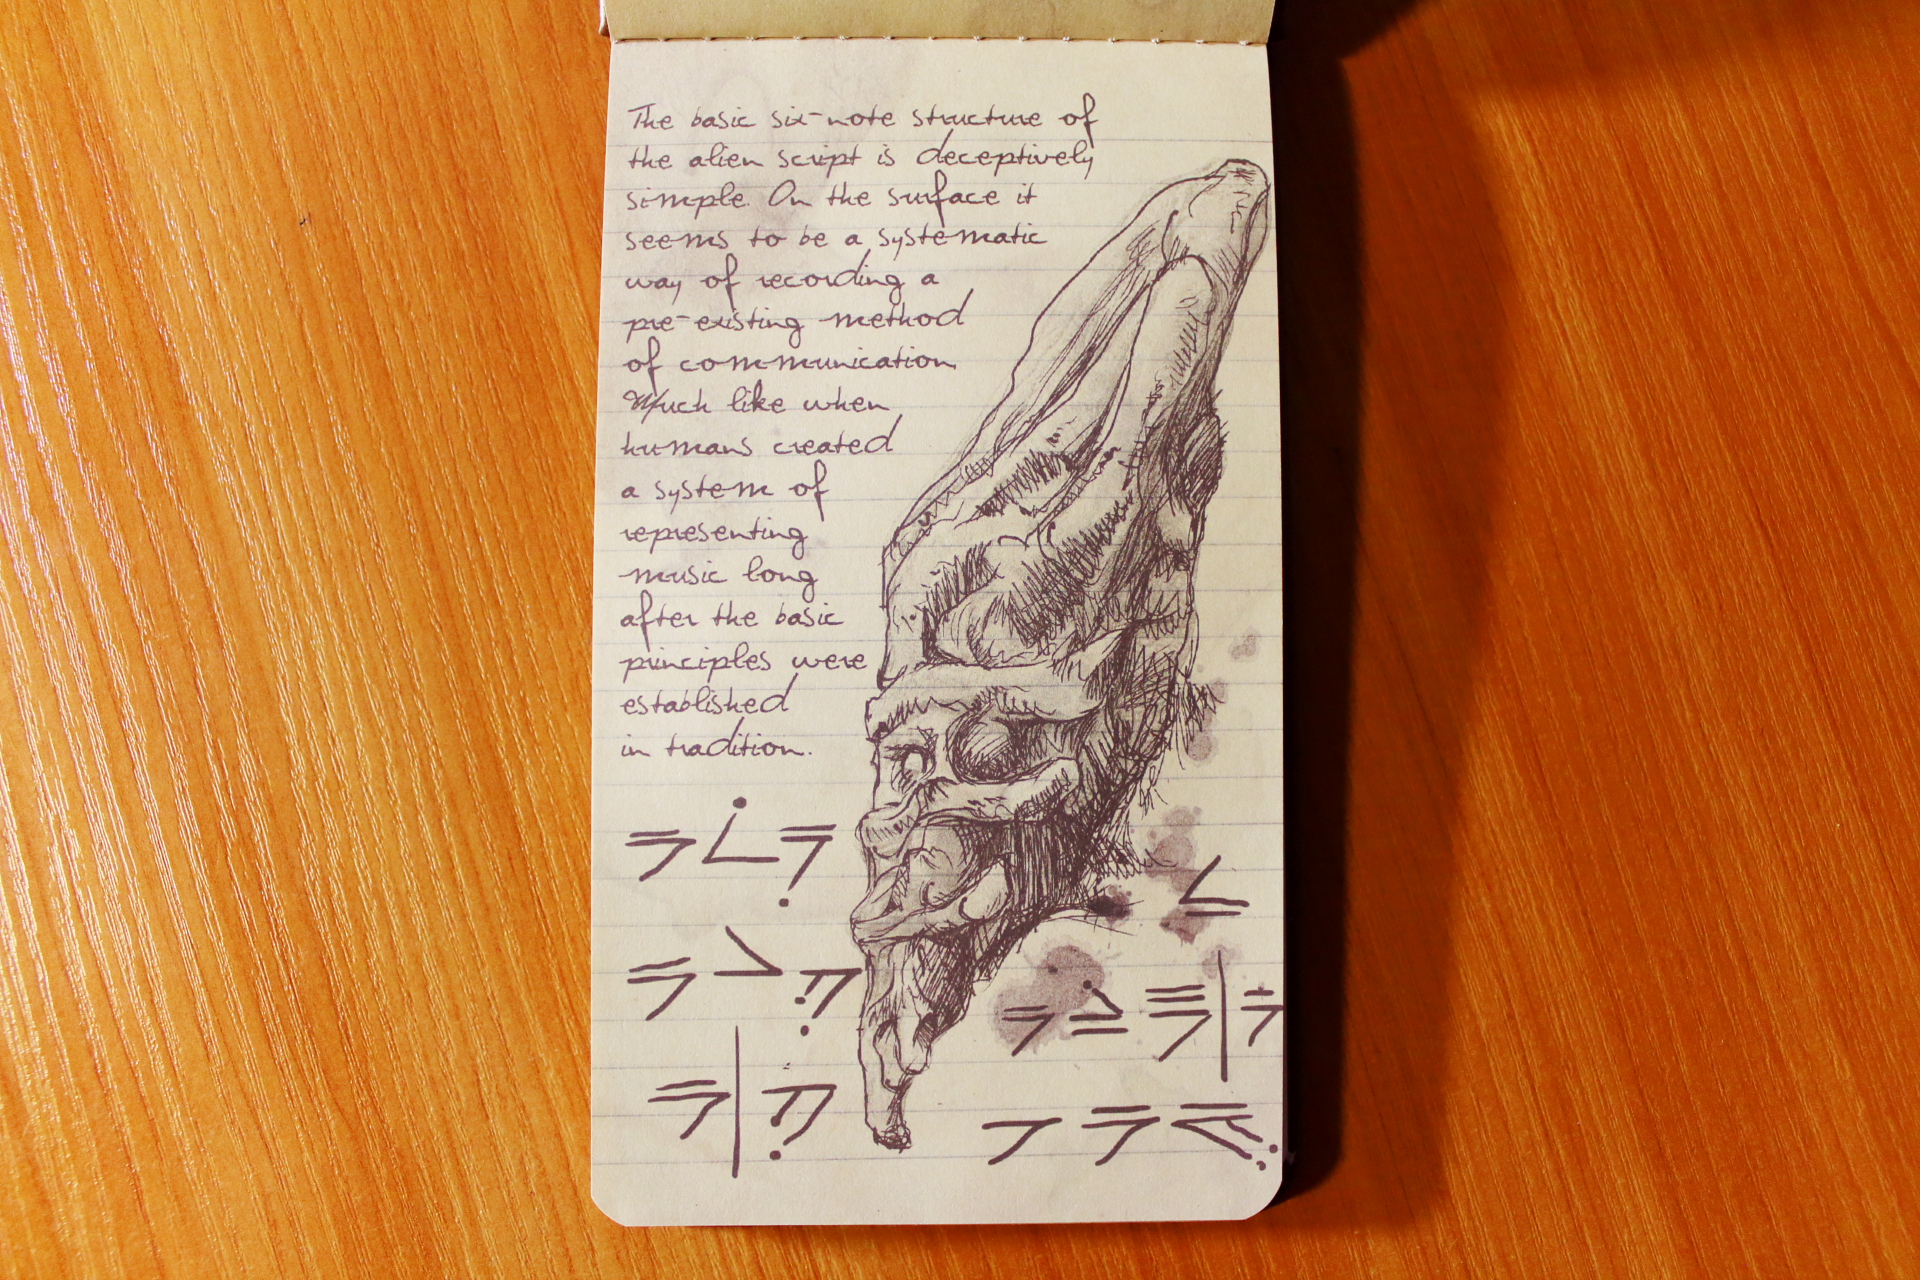 The basic six-note structure of
the alien script is deceptively
simple. On the surface it
seems to be a systematic
way of recording a
pre-existing method
of communication
Much like when
humans created
a system of
representing
music long
after the basic
principles were
established
in tradition.